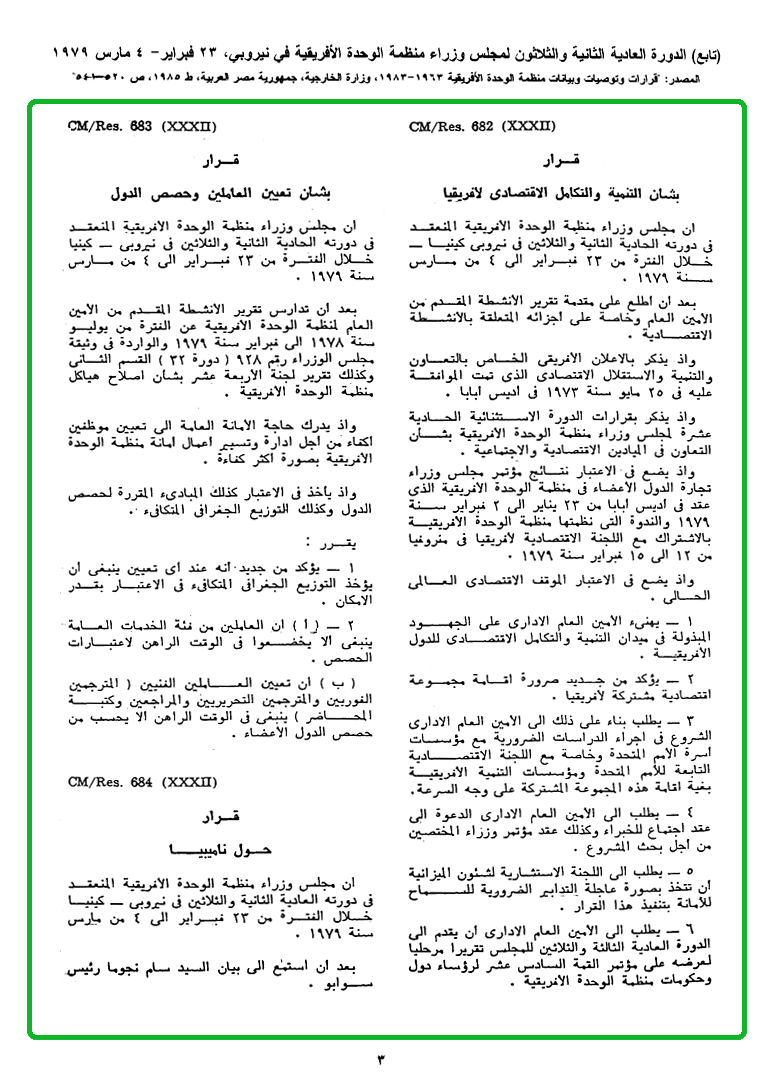 (تابع) الدورة العادية الثانية والثلاثون لمجلس وزراء منظمة الوحدة الأفريقية في نيروبي، ٢٣ فبراير- ٤ مارس ١٩٧٩
المصدر: "قرارات وتوصيات وبيانات منظمة الوحدة الأفريقية ١٩٦٣-١٩٨٣، وزارة الخارجية، جمهورية مصر العربية، ط ١٩٨٥، ص ٥٢٠-٥٤١"
CM/Res. 682 (XXXII)
قــرار
بشان التنمية والتكامل الاقتصادى لأفريقيا
ان مجلس وزراء منظمة الوحدة الأفريقية المنعقد
فى دورته الحادية الثانية والثلاثين فى نيروبى كينيـا —
خــلال الفترة من ٢٣ فبـراير الى ٤ من مـارس
ســنة ١٩٧٩ .
بعد ان اطلع على مقدمة تقرير الأنشطة المقـدم من
الأمين العام وخاصة على اجزائه المتعلقة بالأنشـطة
الاقتصـادية .
واذ يذكر بالاعلان الأفريقى الخـاص بالتعـاون
والتنمية والاستقلال الاقتصادى الذى تمت الموافقـة
عليه فى ٢٥ مايو سنة ١٩٧٣ فى اديس أبابا .
واذ يذكر بقرارات الدورة الاسـتثنائية الحـادية
عشرة لمجلس وزراء منظمة الوحدة الأفريقية بشـأن
التعاون فى الميادين الاقتصادية والاجتماعية .
واذ يضع فى الاعتبار نتـائج مؤتمر مجلس وزراء
تجارة الدول الأعضاء فى منظمة الوحدة الأفريقية الذى
عقد فى اديس أبابا من ٢٣ يناير الى ٢ فبراير سـنة
١٩٧٩ والندوة التى نظمتها منظمة الوحدة الأفريقيـة
بالاشتراك مع اللجنة الاقتصادية لأفريقيا فى منروفيا
من ١٢ الى ١٥ فبراير سنة ١٩٧٩ .
واذ يضع فى الاعتبار الموقف الاقتصادى العـالمى
الحـالى .
١ — يهنىء الأمين العام الادارى على الجهـود
المبذولة فى ميدان التنمية والتكامل الاقتصـادى للدول
الأفريقيـة .
٢ — يؤكد من جـديد ضرورة اقـامة مجمـوعة
اقتصادية مشتركة لأفريقيا .
٣ — يطلب بناء على ذلك الى الأمين العام الادارى
الشروع فى اجراء الدراسات الضرورية مع مؤسسات
اسرة الأمم المتحدة وخاصة مع اللجنة الاقتصـادية
التابعة للأمم المتحدة ومؤسسات التنمية الأفريقيـة
بغية اقامة هذه المجموعة المشتركة على وجه السرعة.
٤ — يطلب الى الأمين العام الادارى الدعوة الى
عقد اجتماع للخبراء وكذلك عقد مؤتمر وزراء المختصين
من أجل بحث المشروع .
٥ — يطلب الى اللجنة الاستشارية لشئون الميزانية
أن تتخذ بصورة عاجلة التدابير الضرورية للسـماح
للأمانة بتنفيذ هذا القرار .
٦ — يطلب الى الأمين العام الادارى ان يقدم الى
الدورة العادية الثالثة والثلاثين للمجلس تقريرا مرحليا
لعرضه على مؤتمر القمة السادس عشر لرؤساء دول
وحكومات منظمة الوحدة الأفريقية .
CM/Res. 683 (XXXII)
قــرار
بشان تعيين العاملين وحصص الدول
ان مجلس وزراء منظمة الوحدة الأفريقية المنعقـد
فى دورته الحادية الثانية والثلاثين فى نيروبى — كينيا
خــلال الفتـرة من ٢٣ فبـراير الى ٤ من مـارس
سنة ١٩٧٩ .
بعد ان تدارس تقرير الأنشطة المقـدم من الأمين
العام لمنظمة الوحدة الأفريقية عن الفترة من يوليـو
سنة ١٩٧٨ الى فبراير سنة ١٩٧٩ والواردة فى وثيقة
مجلس الوزراء رقم ٩٢٨ ( دورة ٣٢ ) القسم الثـانى
وكذلك تقرير لجنة الأربعة عشر بشان اصلاح هياكل
منظمة الوحدة الأفريقية .
واذ يدرك حاجة الأمانة العامة الى تعيين موظفين
اكفاء من أجل ادارة وتسيير أعمال امانة منظمة الوحدة
الأفريقية بصورة أكثر كفاءة .
واذ يأخذ فى الاعتبار كذلك المبادىء المقررة لحصص
الدول وكذلك التوزيع الجغرافى المتكافىء .
يقـرر :
١ — يؤكد من جديد انه عند اى تعيين ينبغى أن
يؤخذ التوزيع الجغرافى المتكافىء فى الاعتبـار بقـدر
الامكان .
٢ — ( أ ) ان العاملين من فئة الخدمات العـامة
ينبغى الا يخضـعوا فى الوقت الراهن لاعتبـارات
الحصص .
( ب ) ان تعيين العـاملين الفنيين ( المترجمين
الفوريين والمترجمين التحريريين والمراجعين وكتبـة
المحـاضر ) ينبغى فى الوقت الراهن الا يحسب من
حصص الدول الأعضاء .
CM/Res. 684 (XXXII)
قــرار
حـول ناميبيـا
ان مجلس وزراء منظمة الوحدة الأفريقية المنعقـد
فى دورته العادية الثانية والثلاثين فى نيروبى — كينيـا
خــلال الفتـرة من ٢٣ فبـراير الى ٤ من مارس
سنة ١٩٧٩ .
بعد ان استمع الى بيان السيد سام نجوما رئيس
سـوابو .
٣